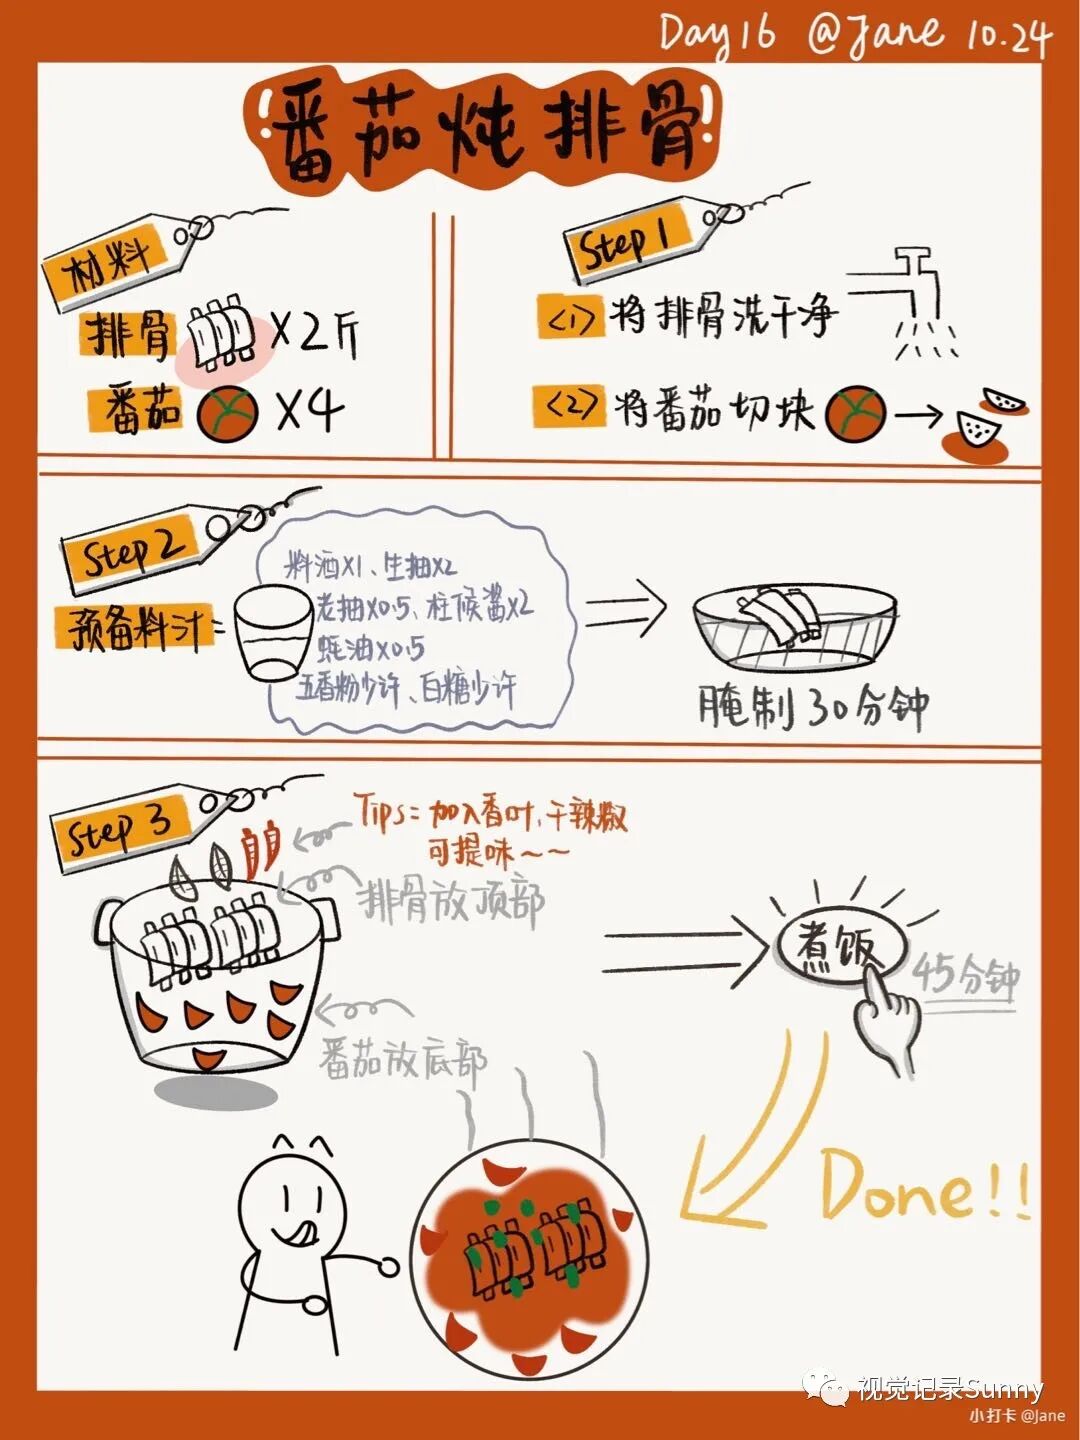 Day16 @Jane 10.24
番茄炖排骨
材料
排骨 X2斤
番茄 X4
Step 1
<1> 将排骨洗干净
<2> 将番茄切块
Step 2
预备料汁=
料酒X1、生抽X2
老抽X0.5、柱候酱X2
蚝油X0.5
五香粉少许、白糖少许
腌制30分钟
Step 3
Tips=加入香叶,干辣椒
可提味~~
排骨放顶部
番茄放底部
煮饭
45分钟
Done!!
视觉记录Sunny
小打卡 @Jane